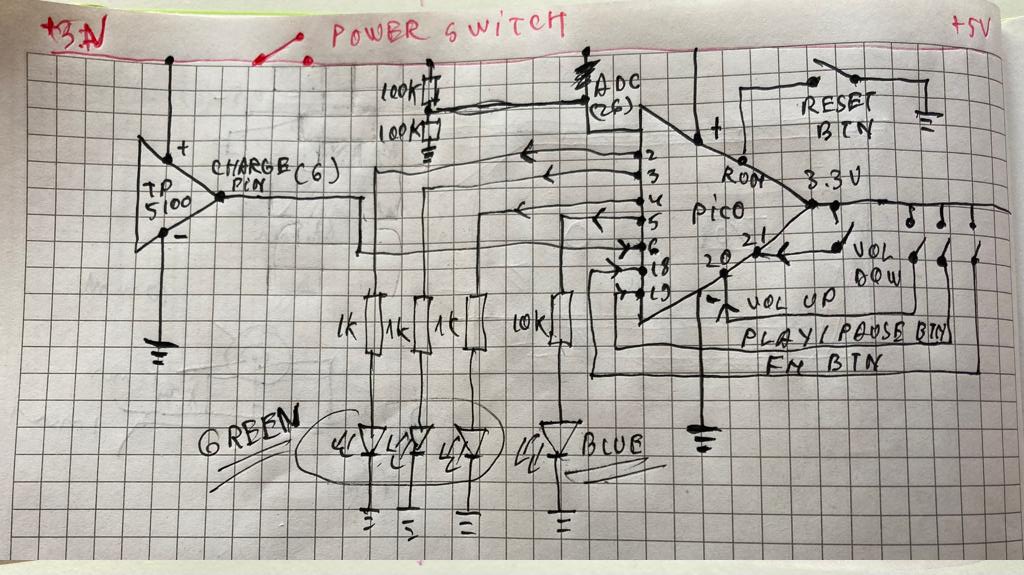 +3.7V
POWER SWITCH
+5V
100K
100K
ADC
(26)
RESET
BTN
+
TP
5100
-
CHARGE (6)
PIN
+
RUN
3.3V
PICO
2
3
4
5
6
18
19
20
21
-
VOL
DOW
VOL UP
PLAY/PAUSE BTN
FM BTN
1K
1K
1K
10K
GREEN
BLUE